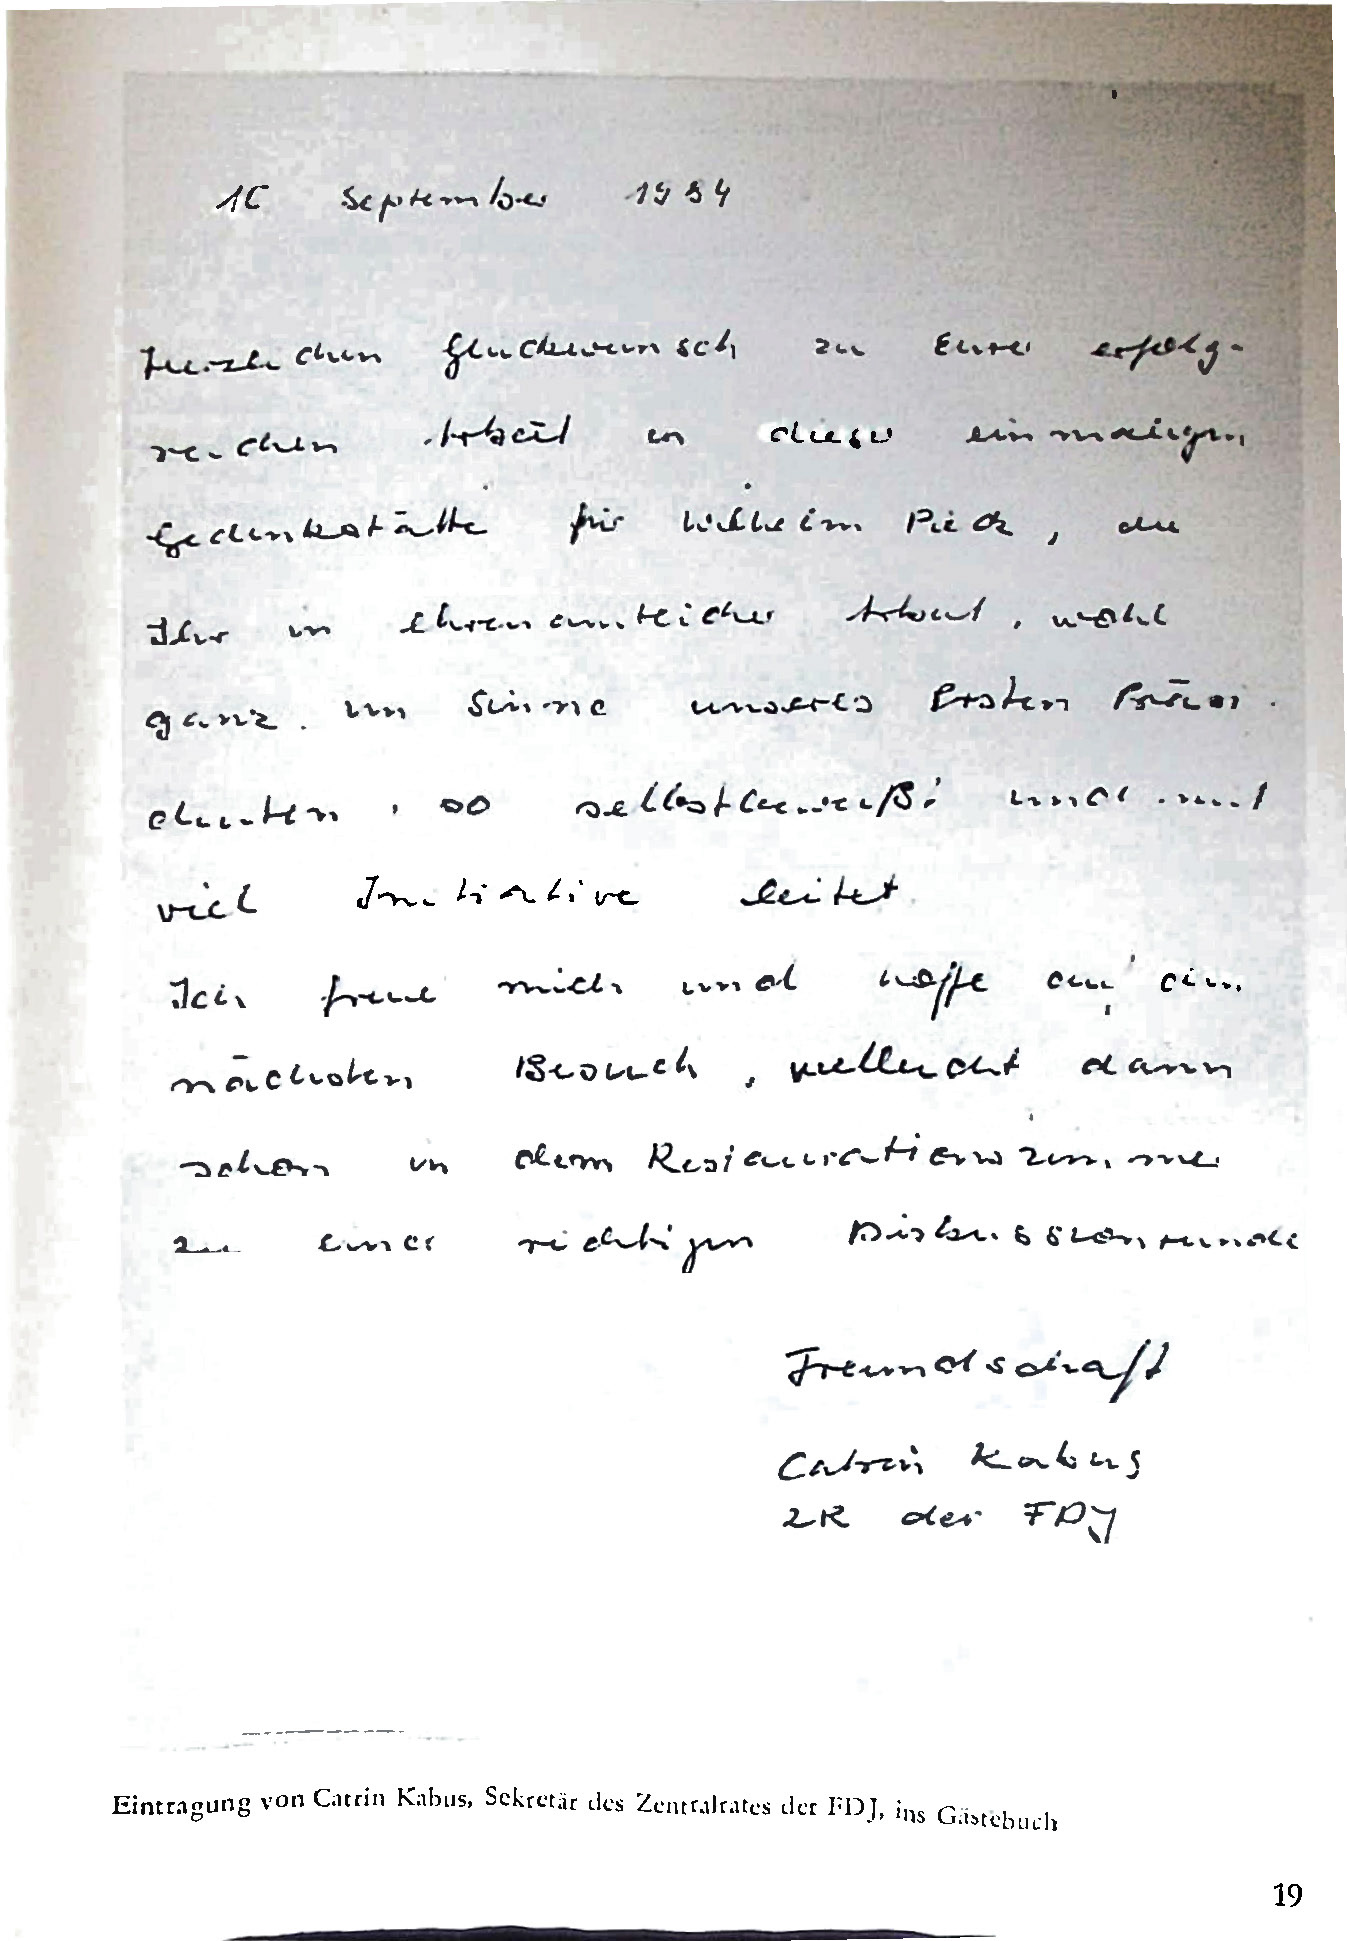 September 1984
Herzlichen Glückwunsch zu Eurer erfolg-
reichen Arbeit in dieser einmaligen
Gedenkstätte für Wilhelm Pieck, die
Ihr in ehrenamtlicher Arbeit, wohl
ganz im Sinne unseres ersten Präsi-
denten, so selbstbewußt und mit
viel Initiative leitet.
Ich freue mich und hoffe auf einen
nächsten Besuch, vielleicht dann
schon in dem Restaurationszimmer
zu einer richtigen Diskussionsrunde
Freundschaft
Catrin Kabus
ZR der FDJ
Eintragung von Catrin Kabus, Sekretär des Zentralrates der FDJ, ins Gästebuch
19